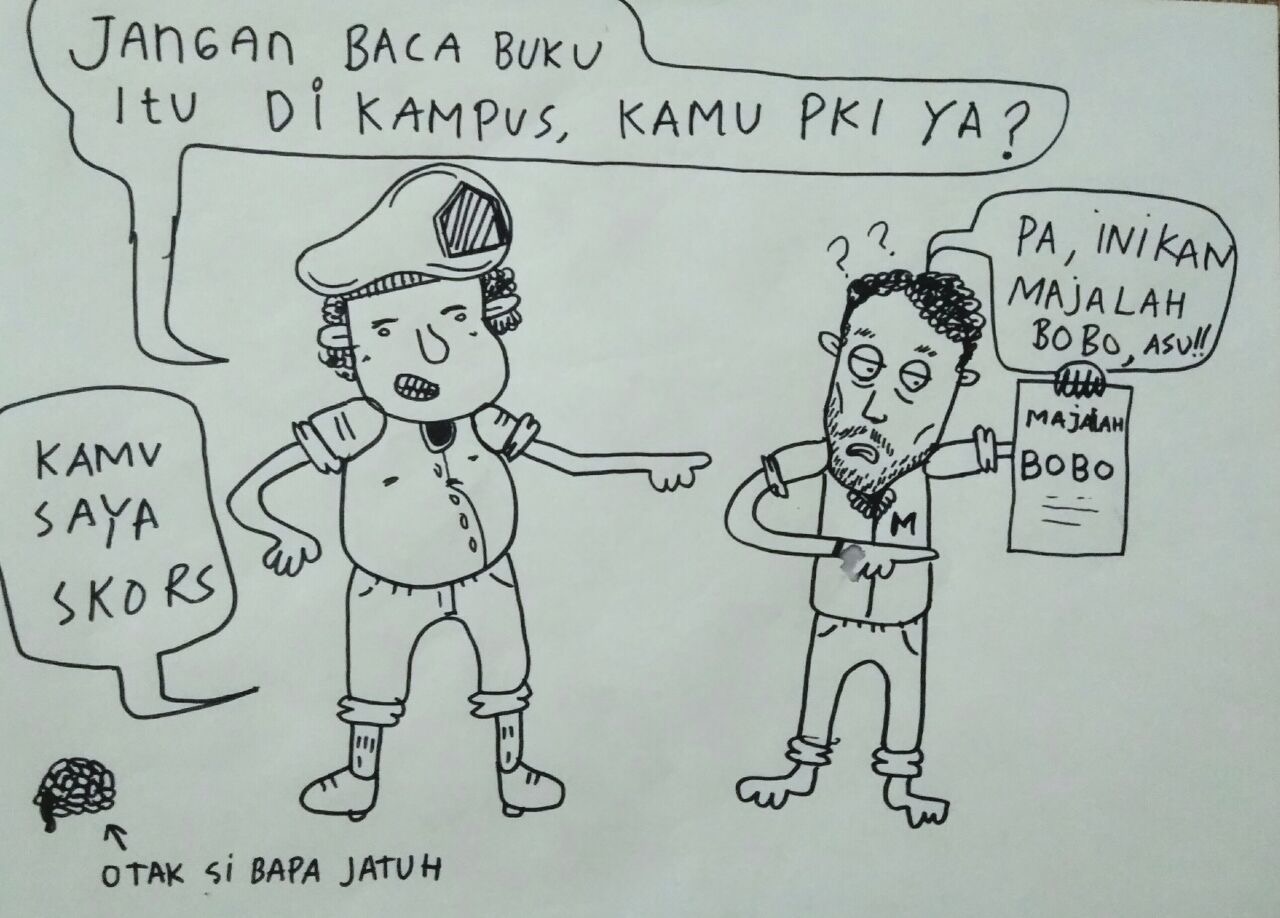 JANGAN BACA BUKU
ITU DI KAMPUS, KAMU PKI YA?
PA, INIKAN
MAJALAH
BOBO, ASU!!
? ?
MAJALAH
BOBO
M
KAMU
SAYA
SKORS
OTAK SI BAPA JATUH